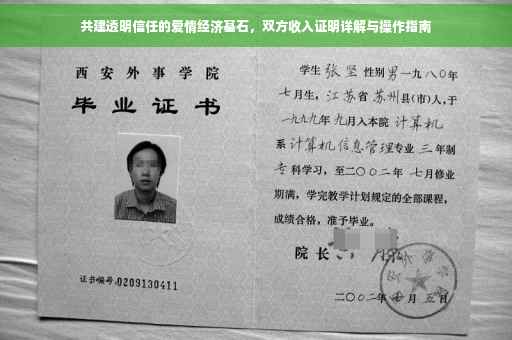 共建透明信任的爱情经济基石，双方收入证明详解与操作指南
西安外事学院
毕业证书
证书编号:0209130411
学生 张坚 性别 男 一九八〇年
七月生，江苏省 苏州县(市)人，于
一九九九年 九月入本院 计算机
系 计算机信息管理专业 三 年制
专科学习，至二〇〇二年 七月修业
期满，学完教学计划规定的全部课程，
成绩合格，准予毕业。
院长
二〇〇二年 七月 五日